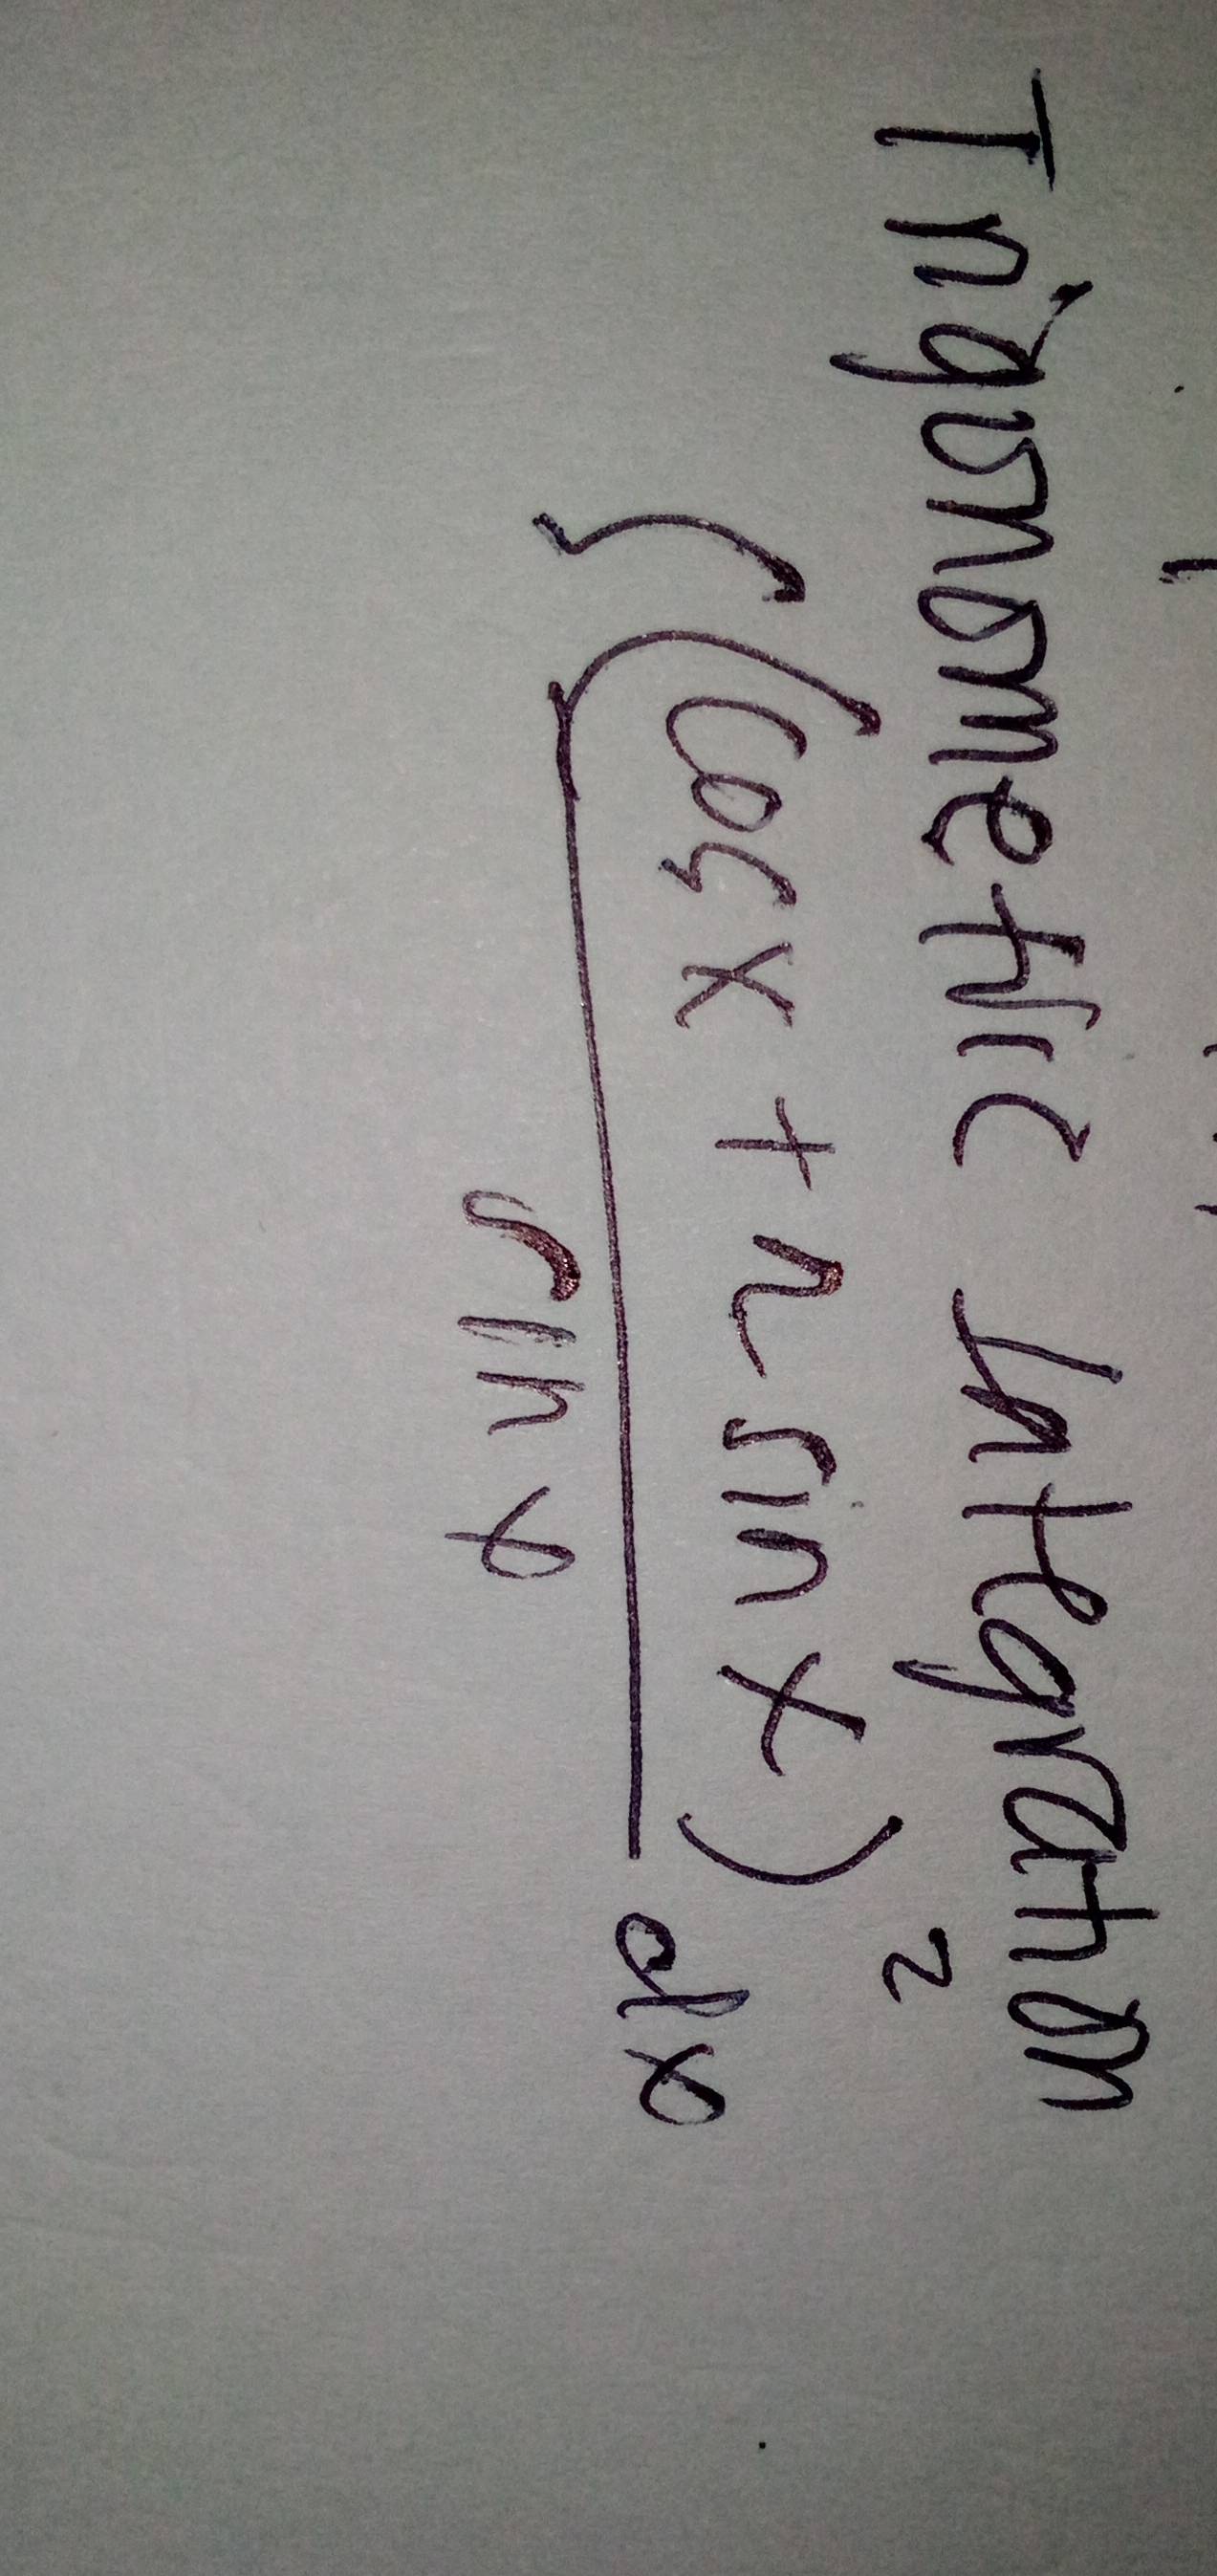 Trigonometric Integration
∫ (cos x + 2 sin x)² dx
sin x